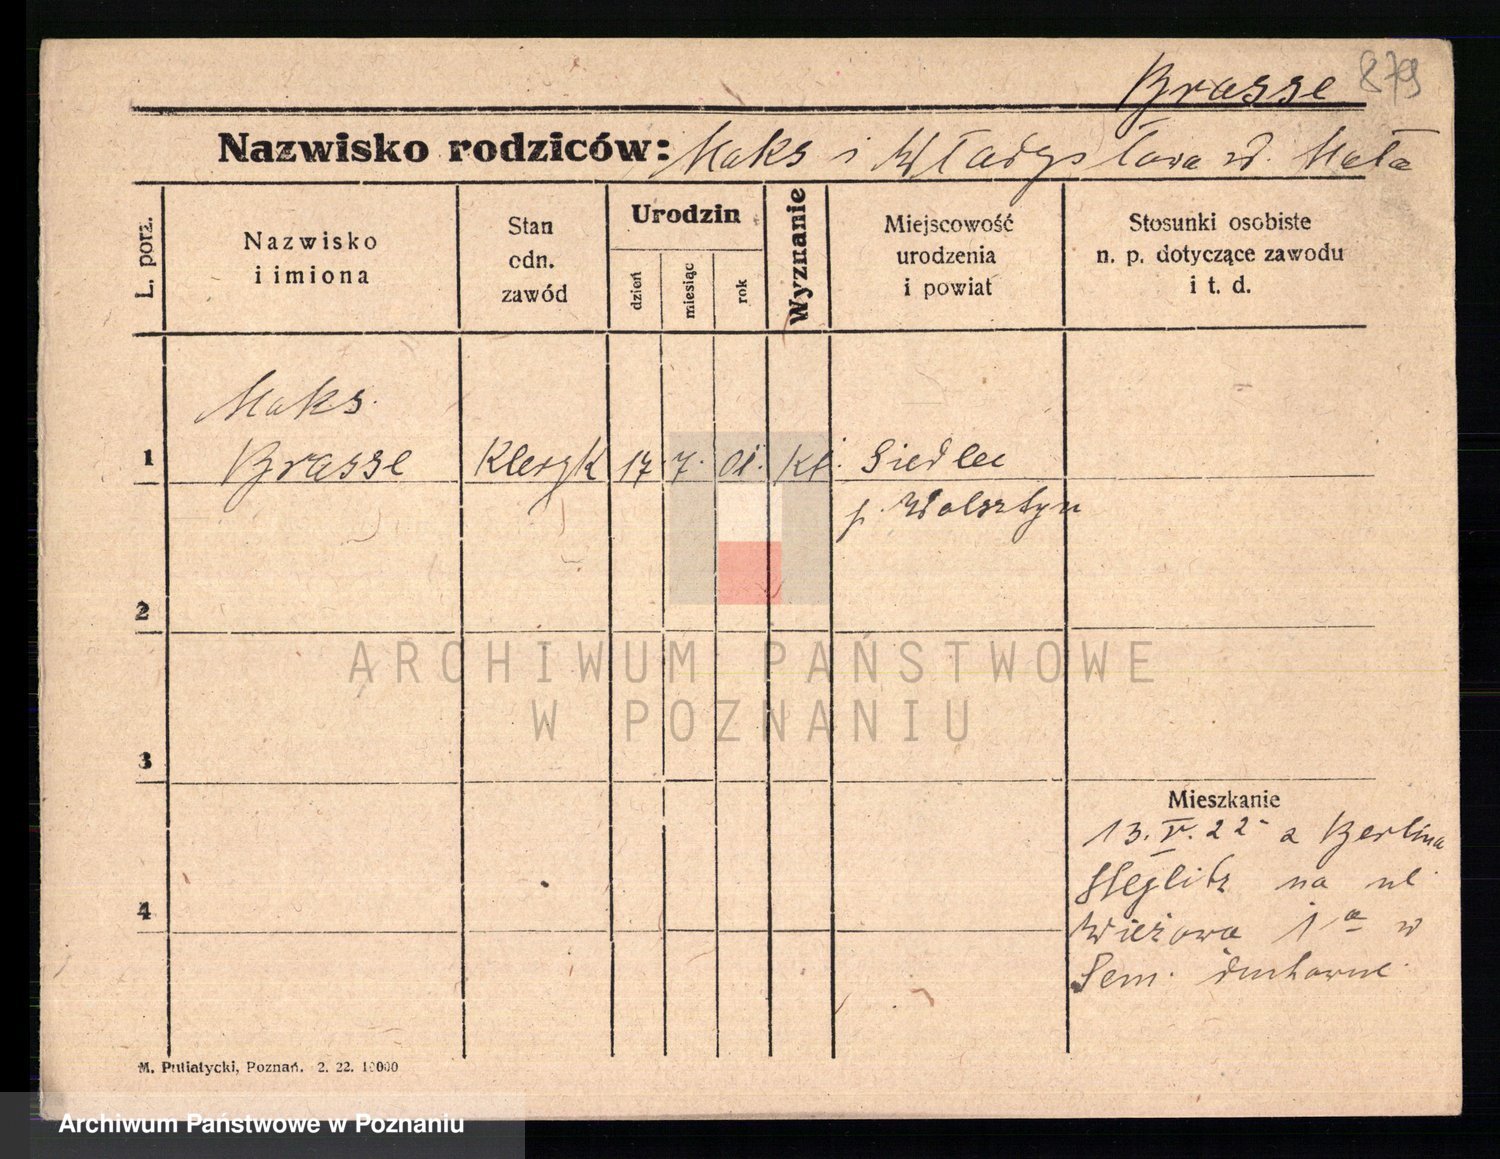 Brasse 879
Nazwisko rodziców: Maks i Władysława d. Mała
L. porz.
Nazwisko
i imiona
Stan
odn.
zawód
Urodzin
dzień
miesiąc
rok
Wyznanie
Miejscowość
urodzenia
i powiat
Stosunki osobiste
n. p. dotyczące zawodu
i t. d.
Maks.
1 Brasse Kleryk 17. 7. 01. kt. Siedlec
p. Wolsztyn
2
ARCHIWUM PAŃSTWOWE
W POZNANIU
3
Mieszkanie
13. V. 22 z Berlina
Steglitz na ul.
4
Wieżowa 1a w
Sem. duchowne.
M. Putiatycki, Poznań. 2. 22. 10000
Archiwum Państwowe w Poznaniu